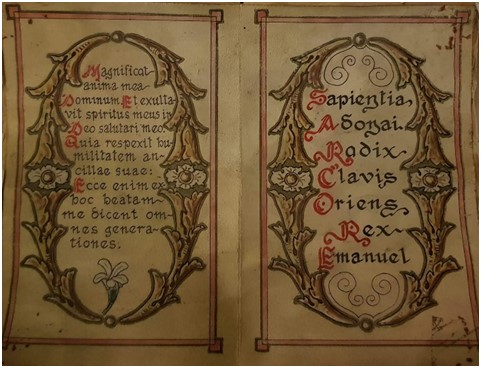 Magnificat
anima mea
Dominum Et exulta
vit spiritus meus in
Deo salutari meo.
Quia respexit hu
militatem an-
cillae suae:
Ecce enim ex
hoc beatam-
me dicent om-
nes genera-
tiones.
Sapientia
Adonai
Radix
Clavis
Oriens
Rex
Emanuel